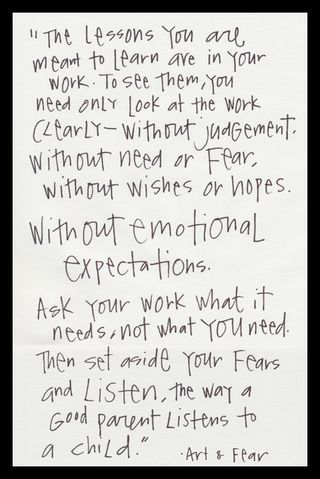 "The Lessons you are
meant to learn are in your
work. To see them, you
need only look at the work
clearly – without judgement,
without need or fear,
without wishes or hopes.
without emotional
expectations.
Ask your work what it
needs, not what you need.
Then set aside your fears
and Listen, the way a
Good parent Listens to
a child."
·Art & Fear